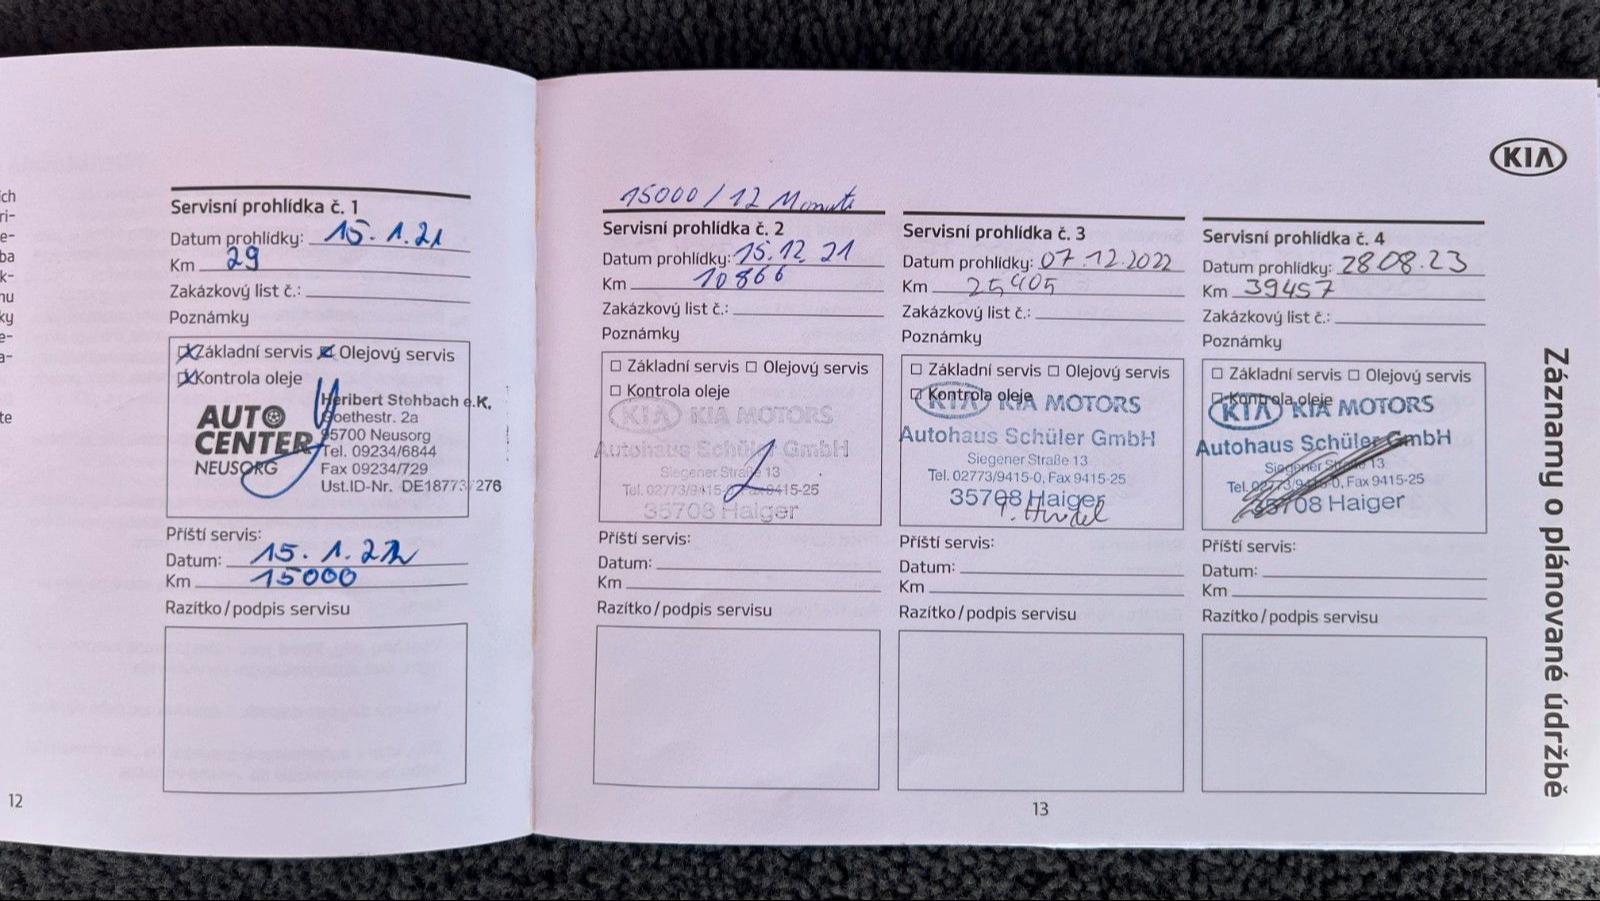 ch
ri-
e-
ba
k-
nu
ky
e-
a-
te
Servisní prohlídka č. 1
Datum prohlídky: 15.1.21
Km 29
Zakázkový list č.:
Poznámky
Základní servis Olejový servis
Kontrola oleje
AUTO CENTER NEUSORG
Heribert Stehbach e.K.
Goethestr. 2a
95700 Neusorg
Tel. 09234/6844
Fax 09234/729
Ust.ID-Nr. DE187737276
Příští servis:
Datum: 15.1.22
Km 15000
Razítko/podpis servisu
12
15000 / 12 Monate
Servisní prohlídka č. 2
Datum prohlídky: 15.12.21
Km 10866
Zakázkový list č.:
Poznámky
Základní servis Olejový servis
Kontrola oleje
KIA KIA MOTORS
Autohaus Schüler GmbH
Siegener Straße 13
Tel. 02773/9415-0, Fax 9415-25
35708 Haiger
Příští servis:
Datum:
Km
Razítko/podpis servisu
Servisní prohlídka č. 3
Datum prohlídky: 07.12.2022
Km 25405
Zakázkový list č.:
Poznámky
Základní servis Olejový servis
Kontrola oleje
KIA KIA MOTORS
Autohaus Schüler GmbH
Siegener Straße 13
Tel. 02773/9415-0, Fax 9415-25
35708 Haiger
Příští servis:
Datum:
Km
Razítko/podpis servisu
13
KIA
Servisní prohlídka č. 4
Datum prohlídky: 28.08.23
Km 39457
Zakázkový list č.:
Poznámky
Základní servis Olejový servis
Kontrola oleje
KIA KIA MOTORS
Autohaus Schüler GmbH
Siegener Straße 13
Tel. 02773/9415-0, Fax 9415-25
35708 Haiger
Příští servis:
Datum:
Km
Razítko/podpis servisu
Záznamy o plánované údržbě